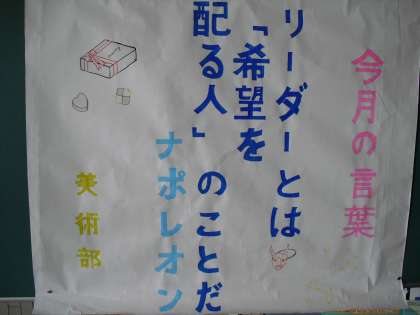 今月の言葉
リーダーとは
「希望を
配る人」のことだ
ナポレオン
美術部